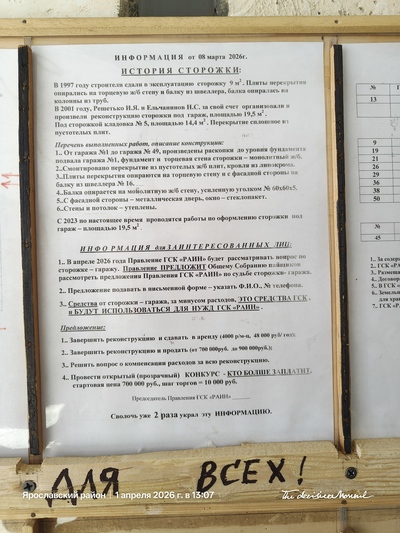 ИНФОРМАЦИЯ от 08 марта 2026г.
ИСТОРИЯ СТОРОЖКИ:
В 1997 году строители сдали в эксплуатацию сторожку 9 м². Плиты перекрытия
опирались на торцевую ж/б стену и балку из швеллера, балка опиралась на
колонны из труб.
В 2001 году, Решетько И.Я. и Ельчанинов И.С. за свой счет организовали и
произвели реконструкцию сторожки под гараж, площадью 19,5 м².
Под сторожкой кладовка № 5, площадью 14,4 м². Перекрытие сплошное из
пустотелых плит.
Перечень выполненных работ, описание конструкции:
1.. От гаража №1 до гаража № 49, произведены раскопки до уровня фундамента
подвала гаража №1, фундамент и торцевая стена гаража – монолитный ж/б.
2..Смонтировано перекрытие из пустотных ж/б плит, кровля из линокрома.
3..Плиты перекрытия опираются на торцевую стену и с фасадной стороны на
балку из швеллера № 16.
4..Балка опирается на монолитную ж/б стену, усиленную уголком № 60х60х5.
5..С фасадной стороны – металлическая дверь, окно – стеклопакет.
6..Стены и потолок – утеплены.
С 2023 по настоящее время проводятся работы по оформлению сторожки под
гараж – площадью 19,5 м².
ИНФОРМАЦИЯ для ЗАИНТЕРЕСОВАННЫХ ЛИЦ:
1.. В апреле 2026 года Правление ГСК «РАИН» будет рассматривать вопрос по
сторожке – гаражу. Правление ПРЕДЛОЖИТ Общему Собранию пайщиков
рассмотреть предложения Правления ГСК «РАИН» по судьбе сторожки- гаража.
2.. Предложение подавать в письменной форме – указать Ф.И.О., № телефона.
3.. Средства от сторожки – гаража, за минусом расходов, ЭТО СРЕДСТВА ГСК .
и БУДУТ ИСПОЛЬЗОВАТЬСЯ ДЛЯ НУЖД ГСК «РАИН» .
Предложение:
1.. Завершить реконструкцию и сдавать в аренду (4000 р/м-ц, 48 000 руб/ год);
2.. Завершить реконструкцию и продать (от 700 000руб. до 900 000руб.);
3.. Решить вопрос о компенсации расходов за всю реконструкцию.
4.. Провести открытый (прозрачный) КОНКУРС - КТО БОЛШЕ ЗАПЛАТИТ,
стартовая цена 700 000 руб., шаг торгов = 10 000 руб.
Председатель Правления ГСК «РАИН»
Сволочь уже 2 раза украл эту ИНФОРМАЦИЮ.
№
13
9
19
21
26
29
36
38
50
№
45
1.. За содер
2.. ГСК «РА
3.. Размеще
4.. Договор
5.. В ГСК «
6.. Земельн
для хра
7.. ГСК «Р
ДЛЯ ВСЕХ!
Ярославский район | 1 апреля 2026 г. в 13:07